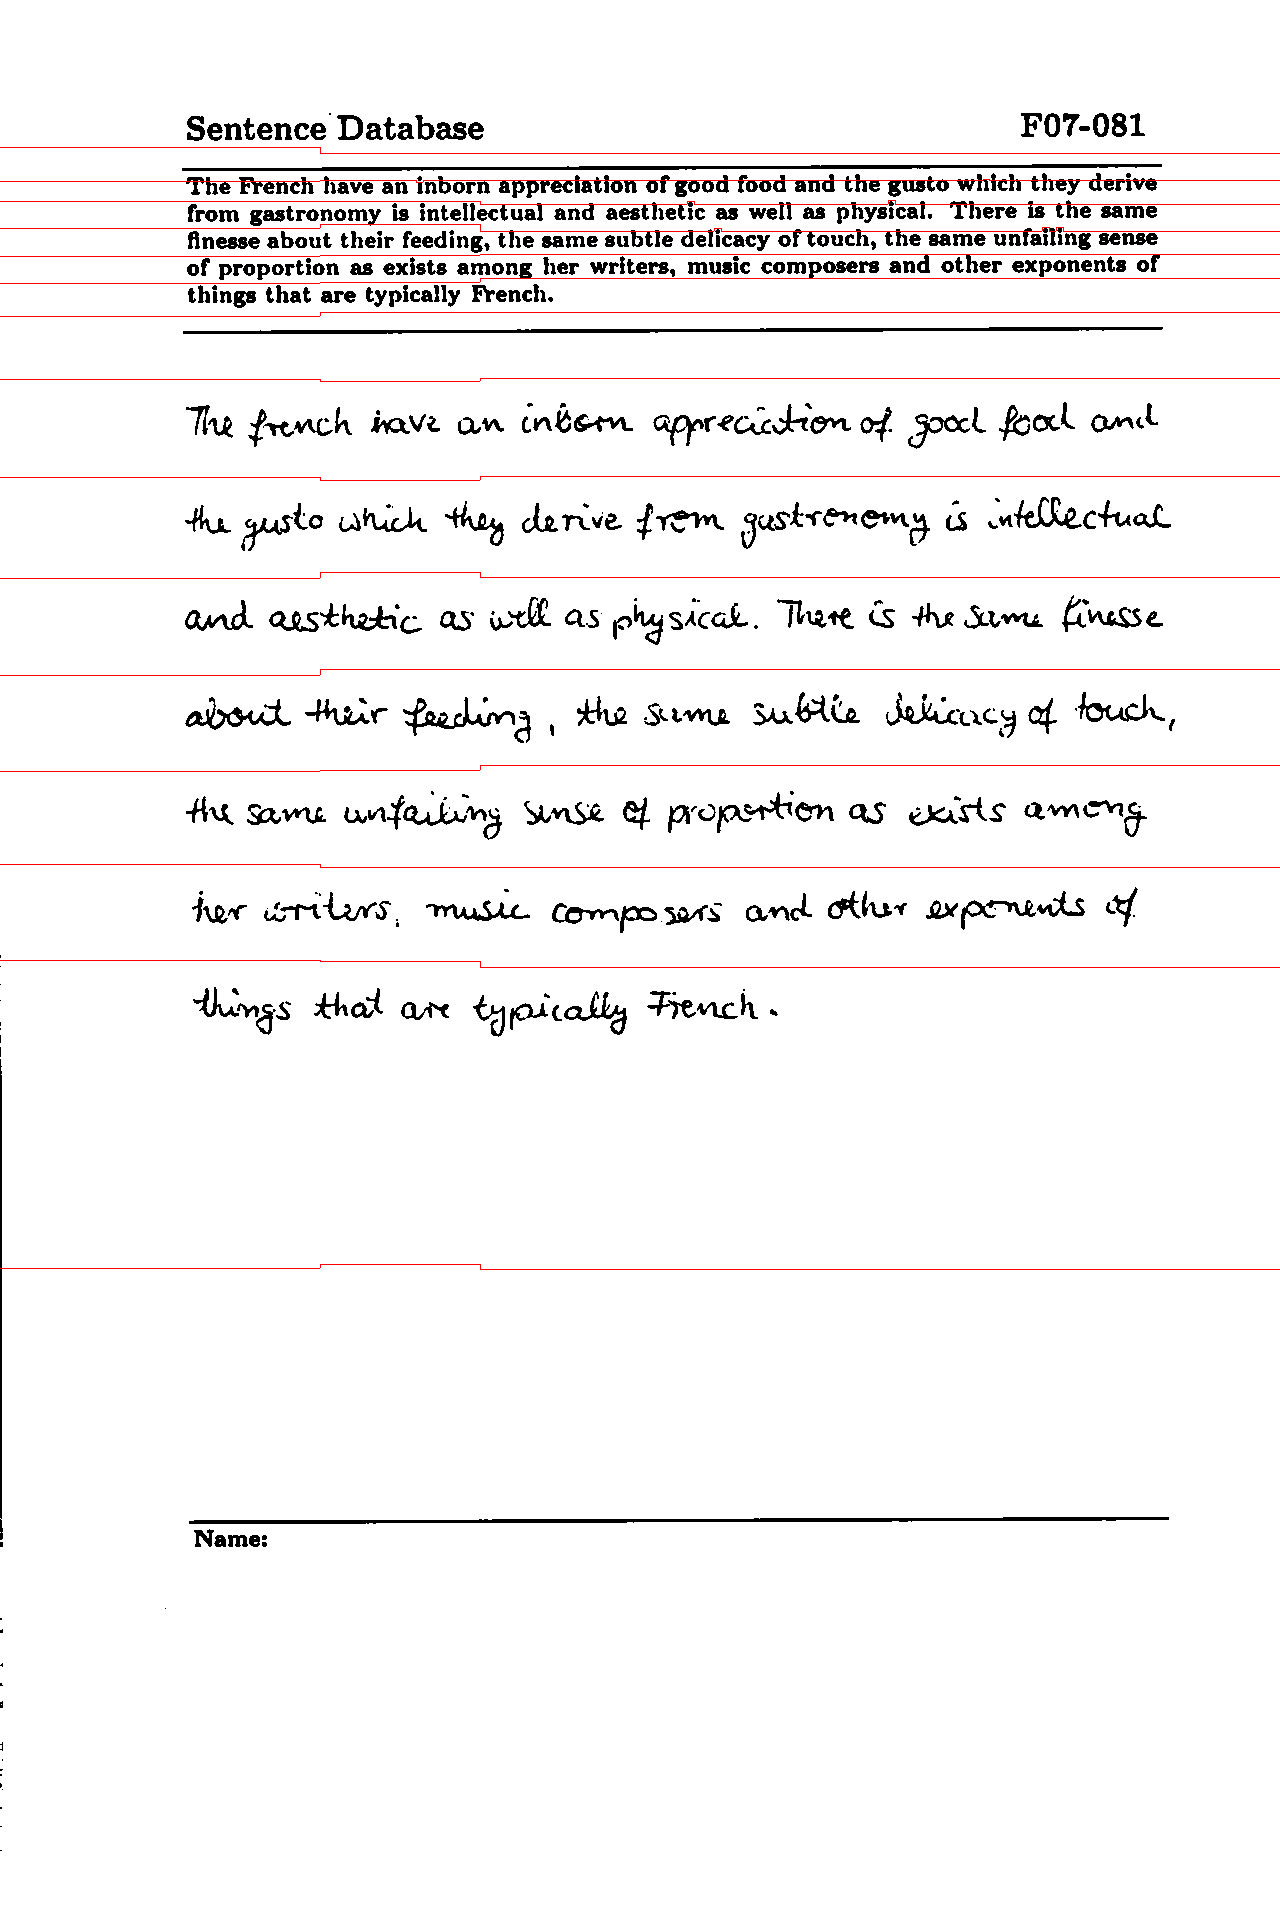 Sentence Database F07-081
The French have an inborn appreciation of good food and the gusto which they derive
from gastronomy is intellectual and aesthetic as well as physical. There is the same
finesse about their feeding, the same subtle delicacy of touch, the same unfailing sense
of proportion as exists among her writers, music composers and other exponents of
things that are typically French.
The french have an inborn appreciation of good food and
the gusto which they derive from gastronomy is intellectual
and aesthetic as well as physical. There is the same finesse
about their feeding, the same subtle delicacy of touch,
the same unfailing sense of proportion as exists among
her writers, music composers and other exponents of
things that are typically French.
Name: